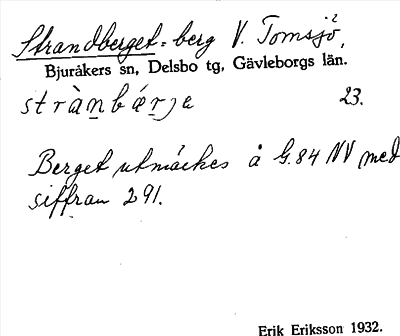 Strandberget = berg V. Tomsjö,
Bjuråkers sn, Delsbo tg, Gävleborgs län.
stràn̲bǽr̲je 23.
Berget utmärkes å G.84 NV med
siffran 291.
Erik Eriksson 1932.